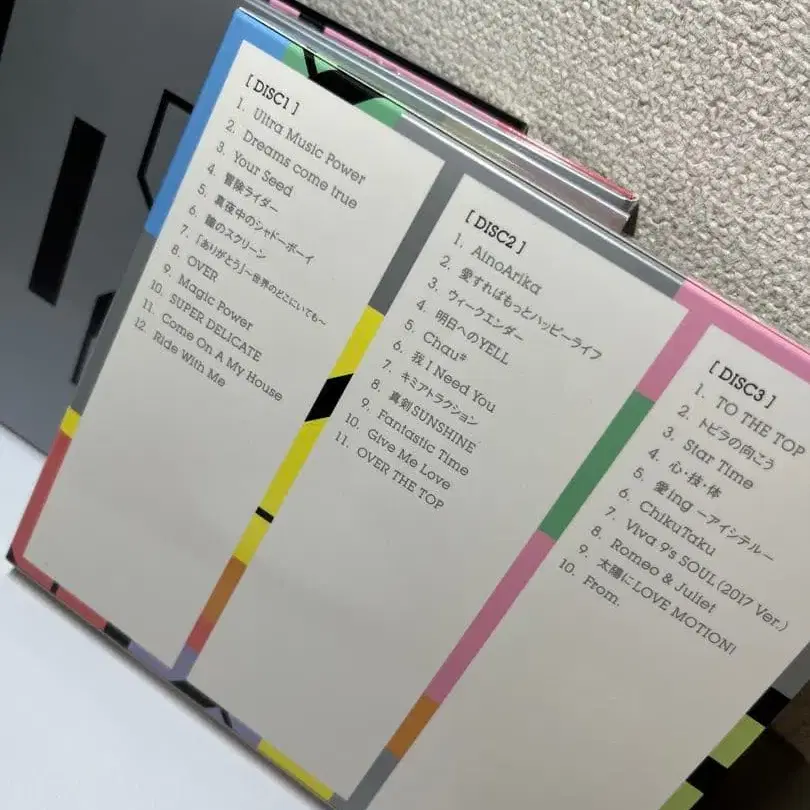 [ DISC1 ]
1. Ultra Music Power
2. Dreams come true
3. Your Seed
4. 冒険ライダー
5. 真夜中のシャドーボーイ
6. 瞳のスクリーン
7. 「ありがとう」～世界のどこにいても～
8. OVER
9. Magic Power
10. SUPER DELICATE
11. Come On A My House
12. Ride With Me
[ DISC2 ]
1. AinoArika
2. 愛すればもっとハッピーライフ
3. ウィークエンダー
4. 明日へのYELL
5. Chau#
6. 我 I Need You
7. キミアトラクション
8. 真剣SUNSHINE
9. Fantastic Time
10. Give Me Love
11. OVER THE TOP
[ DISC3 ]
1. TO THE TOP
2. トビラの向こう
3. Star Time
4. 心・技・体
5. 愛ing ーアイシテルー
6. ChikuTaku
7. Viva 9's SOUL (2017 Ver.)
8. Romeo & Juliet
9. 太陽にLOVE MOTION!
10. From.